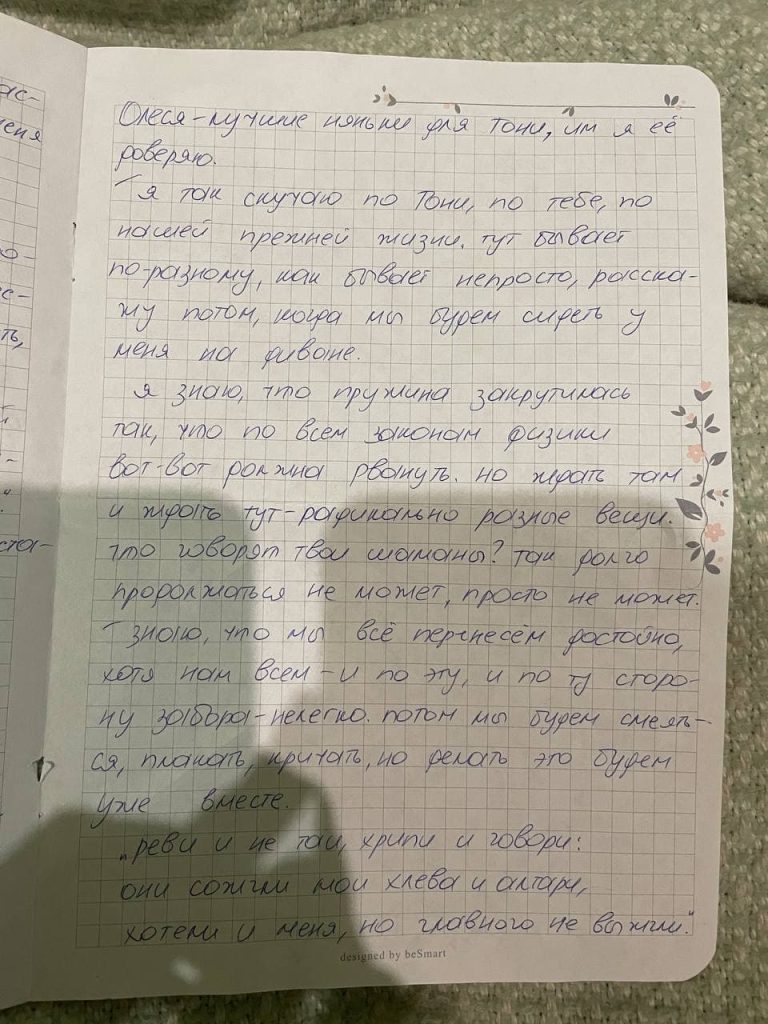 ас-
меня
о-
с-
ть,
-
ста-
Олеся – лучшие няньки для Тони, им я её
доверяю.
я так скучаю по Тони, по тебе, по
нашей прежней жизни. тут бывает
по-разному, как бывает непросто, расска-
жу потом, когда мы будем сидеть у
меня на диване.
я знаю, что пружина закрутилась
так, что по всем законам физики
вот-вот должна рвануть. но ждать там
и ждать тут – радикально разные вещи.
что говорят твои шаманы? так долго
продолжаться не может, просто не может.
знаю, что мы всё перенесём достойно,
хотя нам всем – и по эту, и по ту сторо-
ну забора – нелегко. потом мы будем смеять-
ся, плакать, кричать, но делать это будем
уже вместе.
„реви и не таи, хрипи и говори:
они сожгли мои хлева и алтари,
хотели и меня, но главного не выжгли."
designed by beSmart